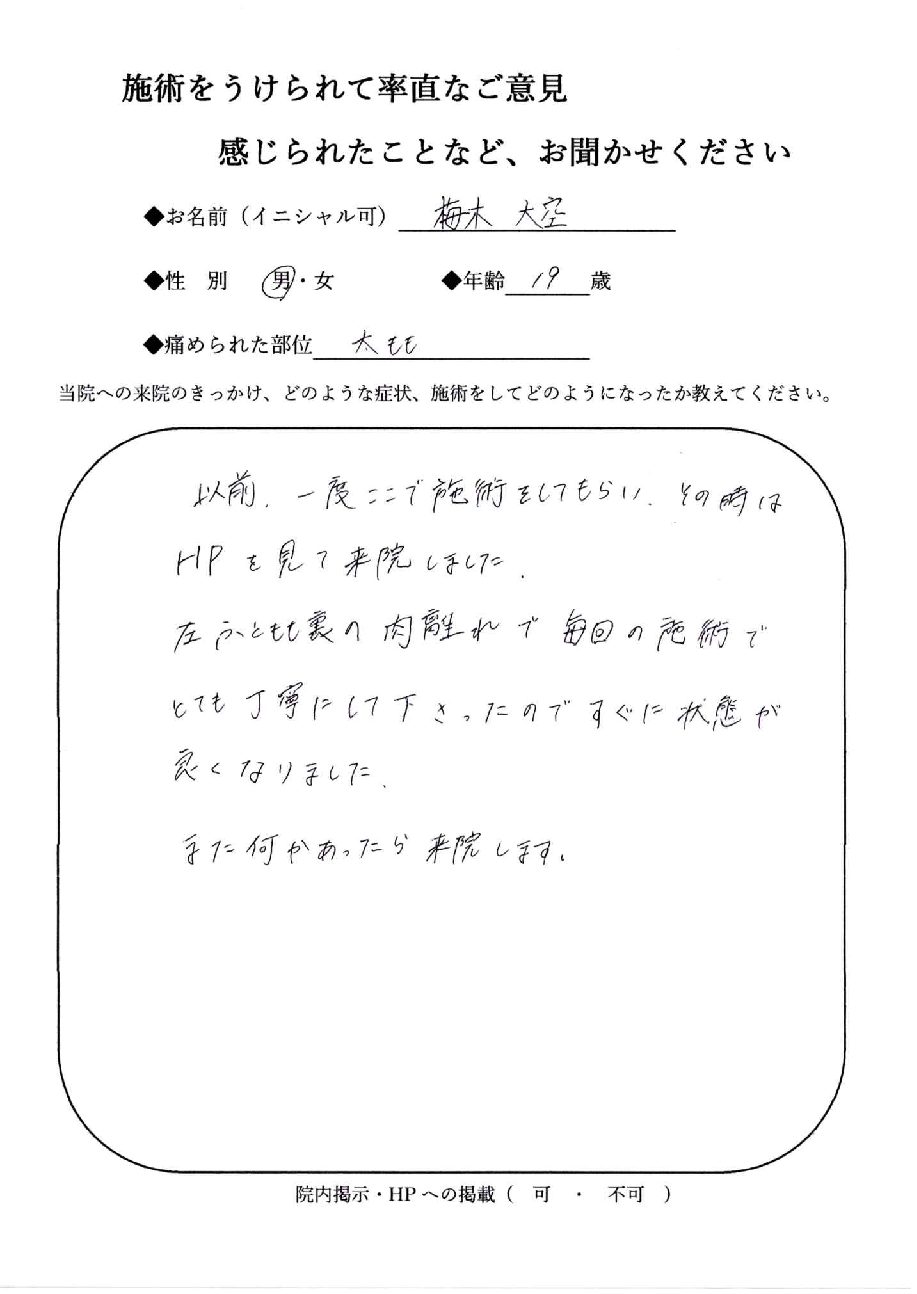 施術をうけられて率直なご意見
感じられたことなど、お聞かせください
◆お名前（イニシャル可） 梅木 大空
◆性 別 男・女 ◆年齢 19 歳
◆痛められた部位 太もも
当院への来院のきっかけ、どのような症状、施術をしてどのようになったか教えてください。
以前、一度ここで施術をしてもらい、その時は
HPを見て来院しました。
左ふともも裏の肉離れで毎回の施術で
とても丁寧にして下さったのですぐに状態が
良くなりました。
また何かあったら来院します。
院内掲示・HPへの掲載（ 可 ・ 不可 ）